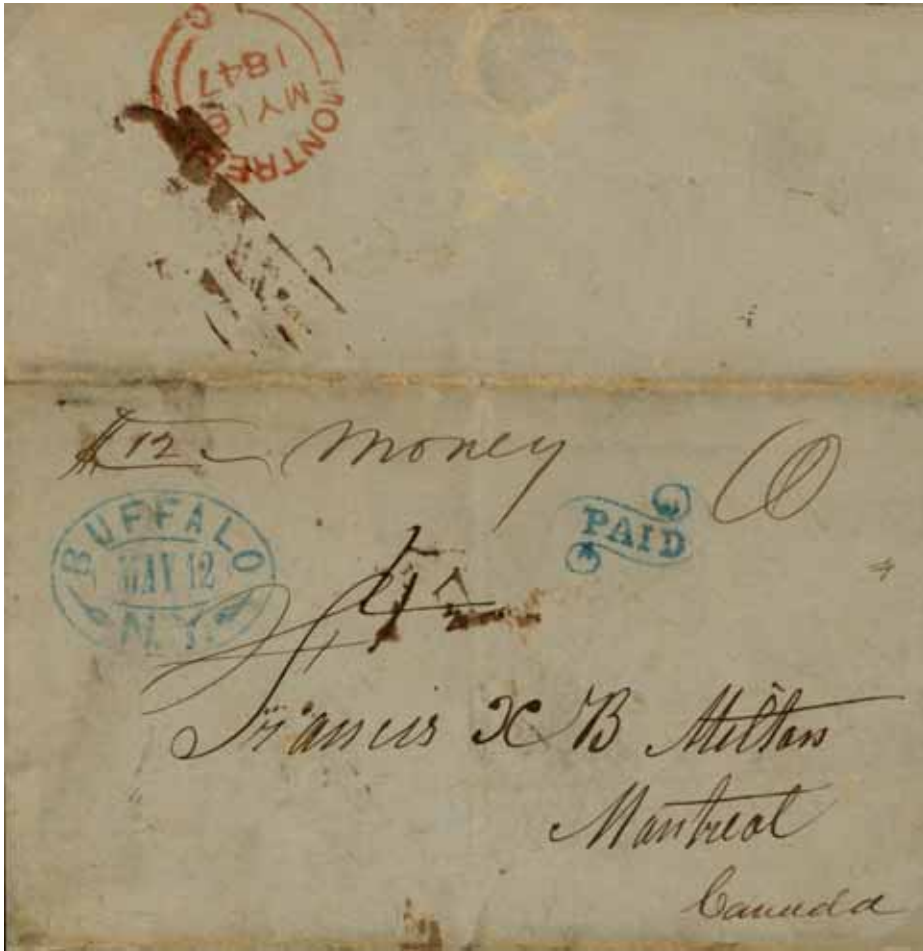 MONTRE
MY 16
1847
12 Money
BUFFALO
MAY 12
N.Y.
PAID
Francis X B Milton
Montreal
Canada